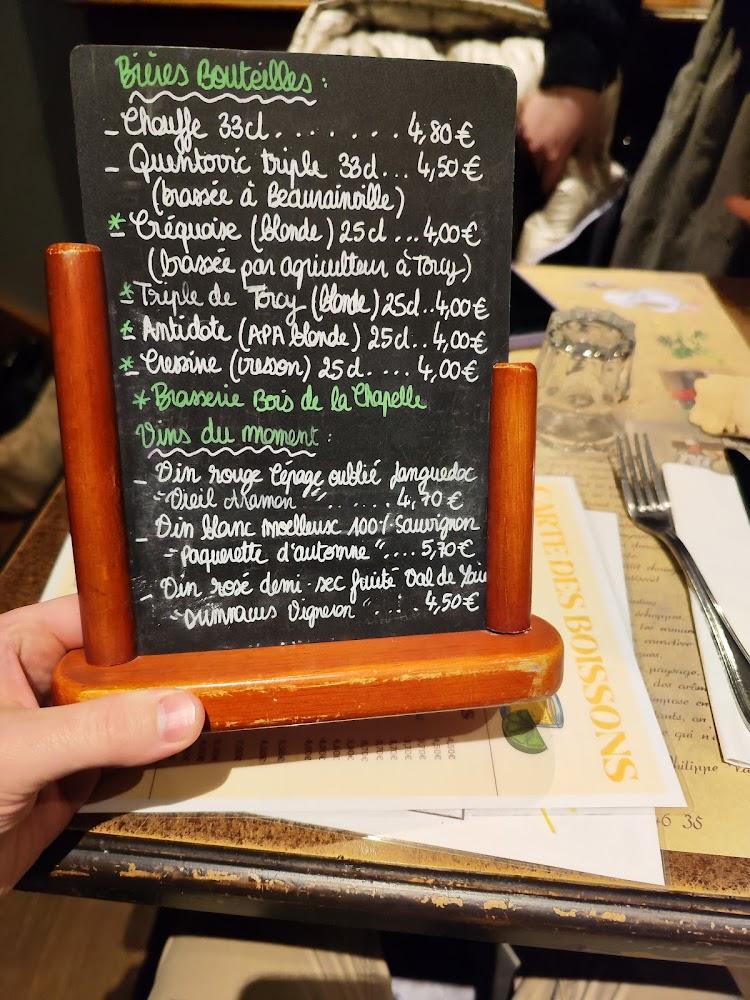 Bières Bouteilles :
- Chouffe 33cl........4,80€
- Quentovic triple 33cl...4,50€
(brassée à Beaurainville)
* - Créquoise (blonde) 25cl...4,00€
(brassée par agriculteur à Torcy)
* - Triple de Torcy (blonde) 25cl..4,00€
* - Antidote (APA blonde) 25cl..4,00€
* - Cressine (cresson) 25cl....4,00€
* Brasserie Bois de la Chapelle
Vins du moment :
- Vin rouge Cépage oublié Languedoc
"Vieil Aramon"........4,70€
- Vin blanc moelleux 100% Sauvignon
"Paquerette d'automne"....5,70€
- Vin rosé demi-sec fruité Val de Loire
Vigneron"......4,50€
CARTE DES BOISSONS